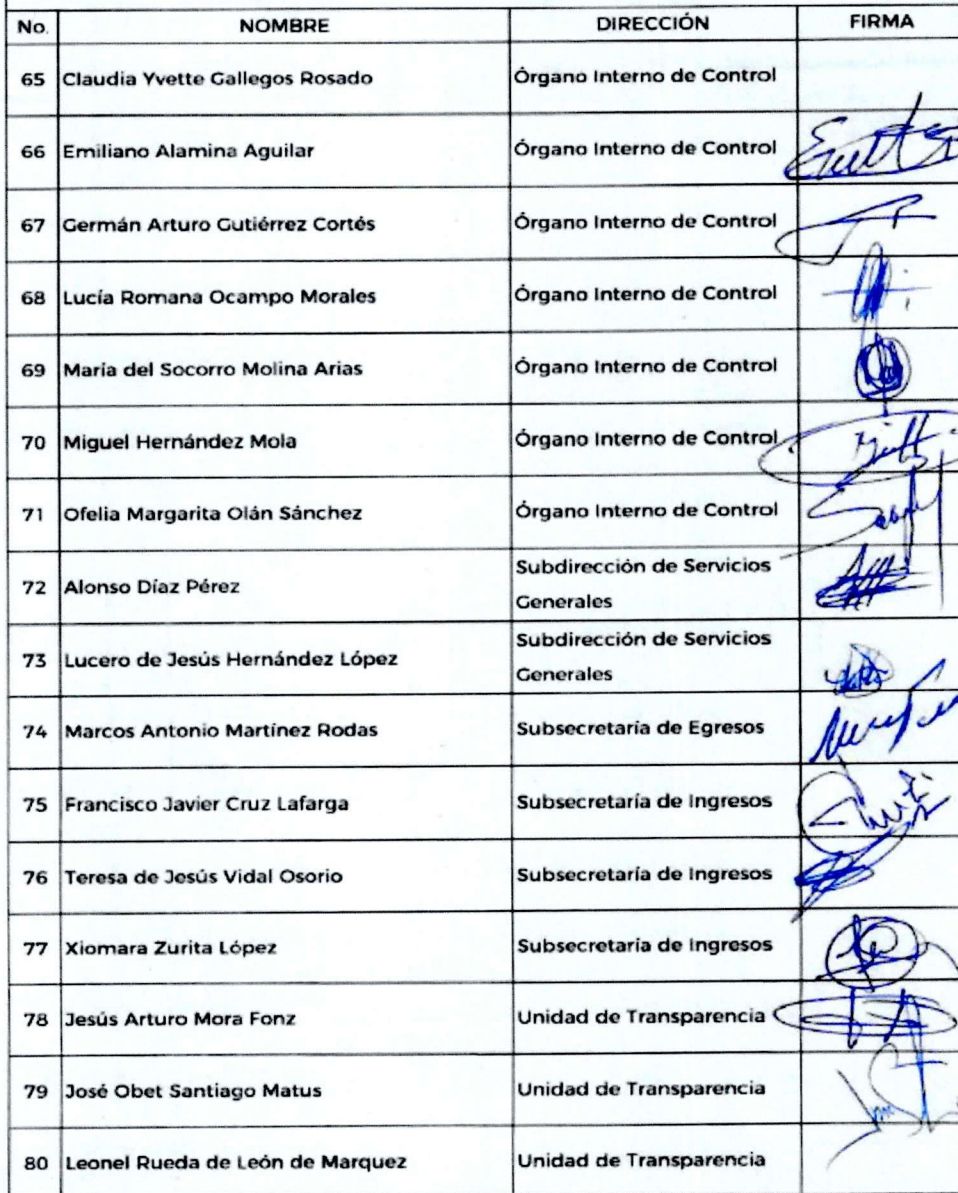 No. NOMBRE DIRECCIÓN FIRMA
65 Claudia Yvette Gallegos Rosado Órgano Interno de Control
66 Emiliano Alamina Aguilar Órgano Interno de Control
67 Germán Arturo Gutiérrez Cortés Órgano Interno de Control
68 Lucía Romana Ocampo Morales Órgano Interno de Control
69 María del Socorro Molina Arias Órgano Interno de Control
70 Miguel Hernández Mola Órgano Interno de Control
71 Ofelia Margarita Olán Sánchez Órgano Interno de Control
72 Alonso Díaz Pérez Subdirección de Servicios
Generales
73 Lucero de Jesús Hernández López Subdirección de Servicios
Generales
74 Marcos Antonio Martínez Rodas Subsecretaría de Egresos
75 Francisco Javier Cruz Lafarga Subsecretaría de Ingresos
76 Teresa de Jesús Vidal Osorio Subsecretaría de Ingresos
77 Xiomara Zurita López Subsecretaría de Ingresos
78 Jesús Arturo Mora Fonz Unidad de Transparencia
79 José Obet Santiago Matus Unidad de Transparencia
80 Leonel Rueda de León de Marquez Unidad de Transparencia